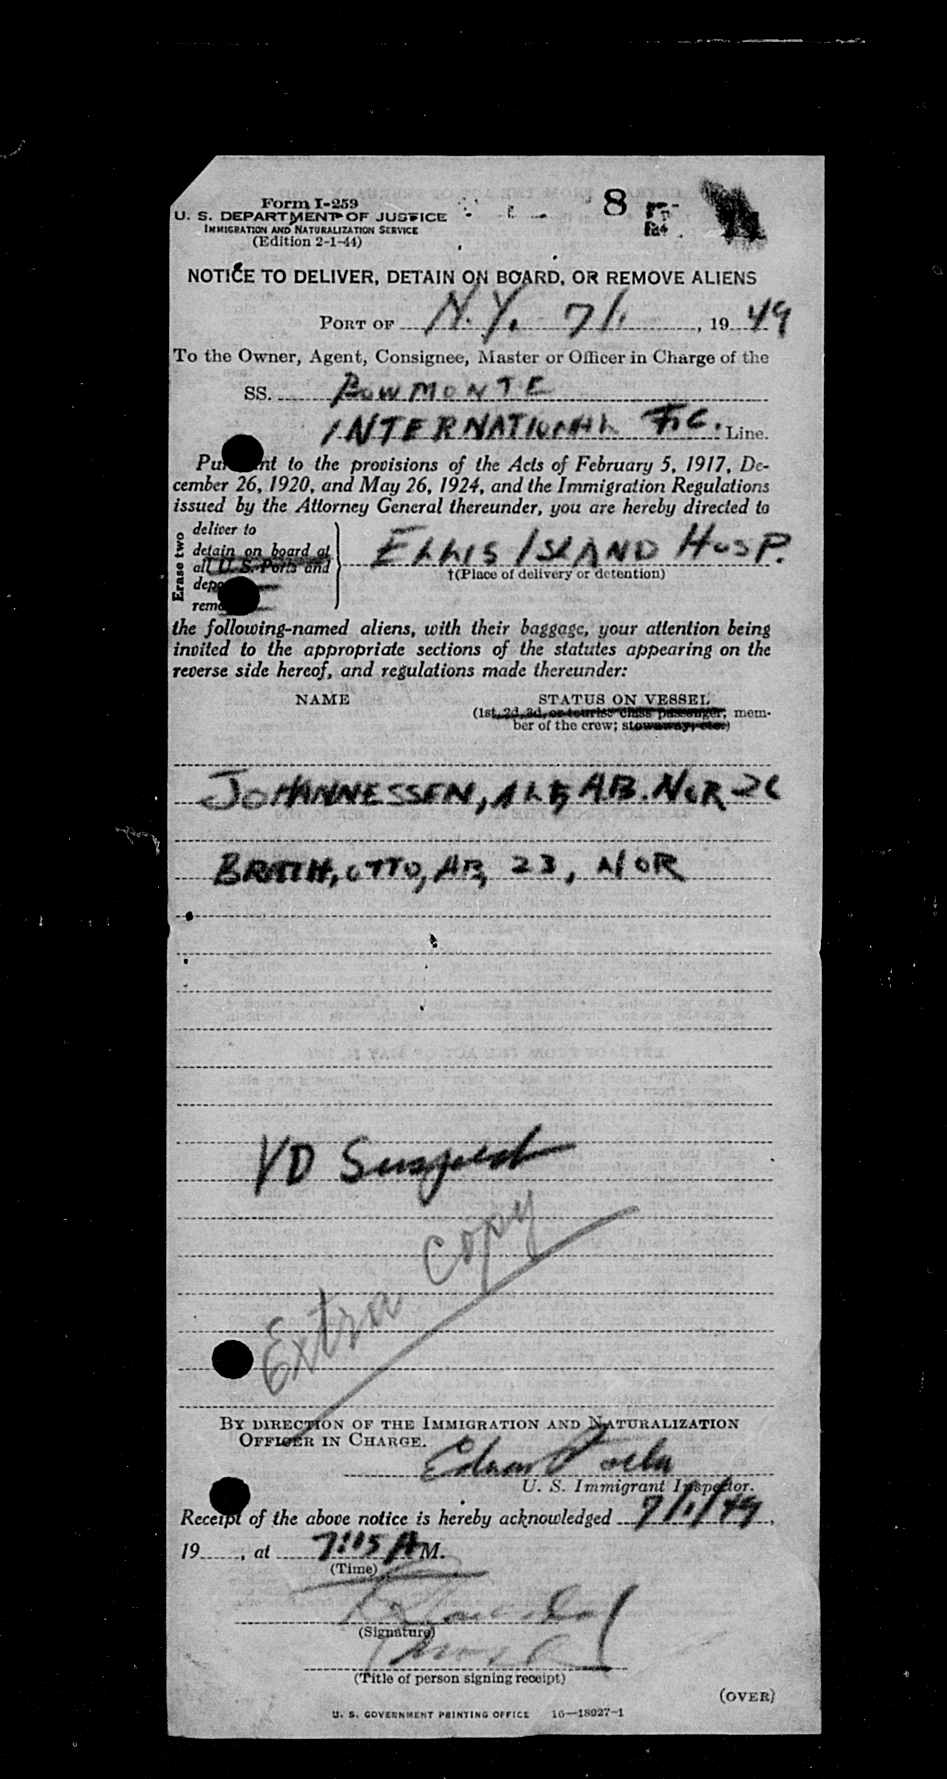 Form I-259
U. S. DEPARTMENT OF JUSTICE
IMMIGRATION AND NATURALIZATION SERVICE
(Edition 2-1-44)
8
NOTICE TO DELIVER, DETAIN ON BOARD, OR REMOVE ALIENS
PORT OF N.Y. 7/1, 1949
To the Owner, Agent, Consignee, Master or Officer in Charge of the
SS. BOWMONTE
INTERNATIONAL F.C. Line.
Pu nt to the provisions of the Acts of February 5, 1917, De-
cember 26, 1920, and May 26, 1924, and the Immigration Regulations
issued by the Attorney General thereunder, you are hereby directed to
Erase two
deliver to
detain on board at
all U. S. Ports and
dep
rem
ELLIS ISLAND HOSP.
†(Place of delivery or detention)
the following-named aliens, with their baggage, your attention being
invited to the appropriate sections of the statutes appearing on the
reverse side hereof, and regulations made thereunder:
NAME STATUS ON VESSEL
(1st, 2d, 3d, or tourist class passenger, mem-
ber of the crew; stowaway, etc.)
JOHANNESSEN, ALF, AB. NOR 26
OTTO, AB, 23, NOR
VD Suspect
Extra copy
BY DIRECTION OF THE IMMIGRATION AND NATURALIZATION
OFFICER IN CHARGE.
U. S. Immigrant Inspector.
Receipt of the above notice is hereby acknowledged 7/1/49,
19 , at 7:15 AM.
(Time)
(Signature)
(Title of person signing receipt)
(OVER)
U. S. GOVERNMENT PRINTING OFFICE 16—18027-1